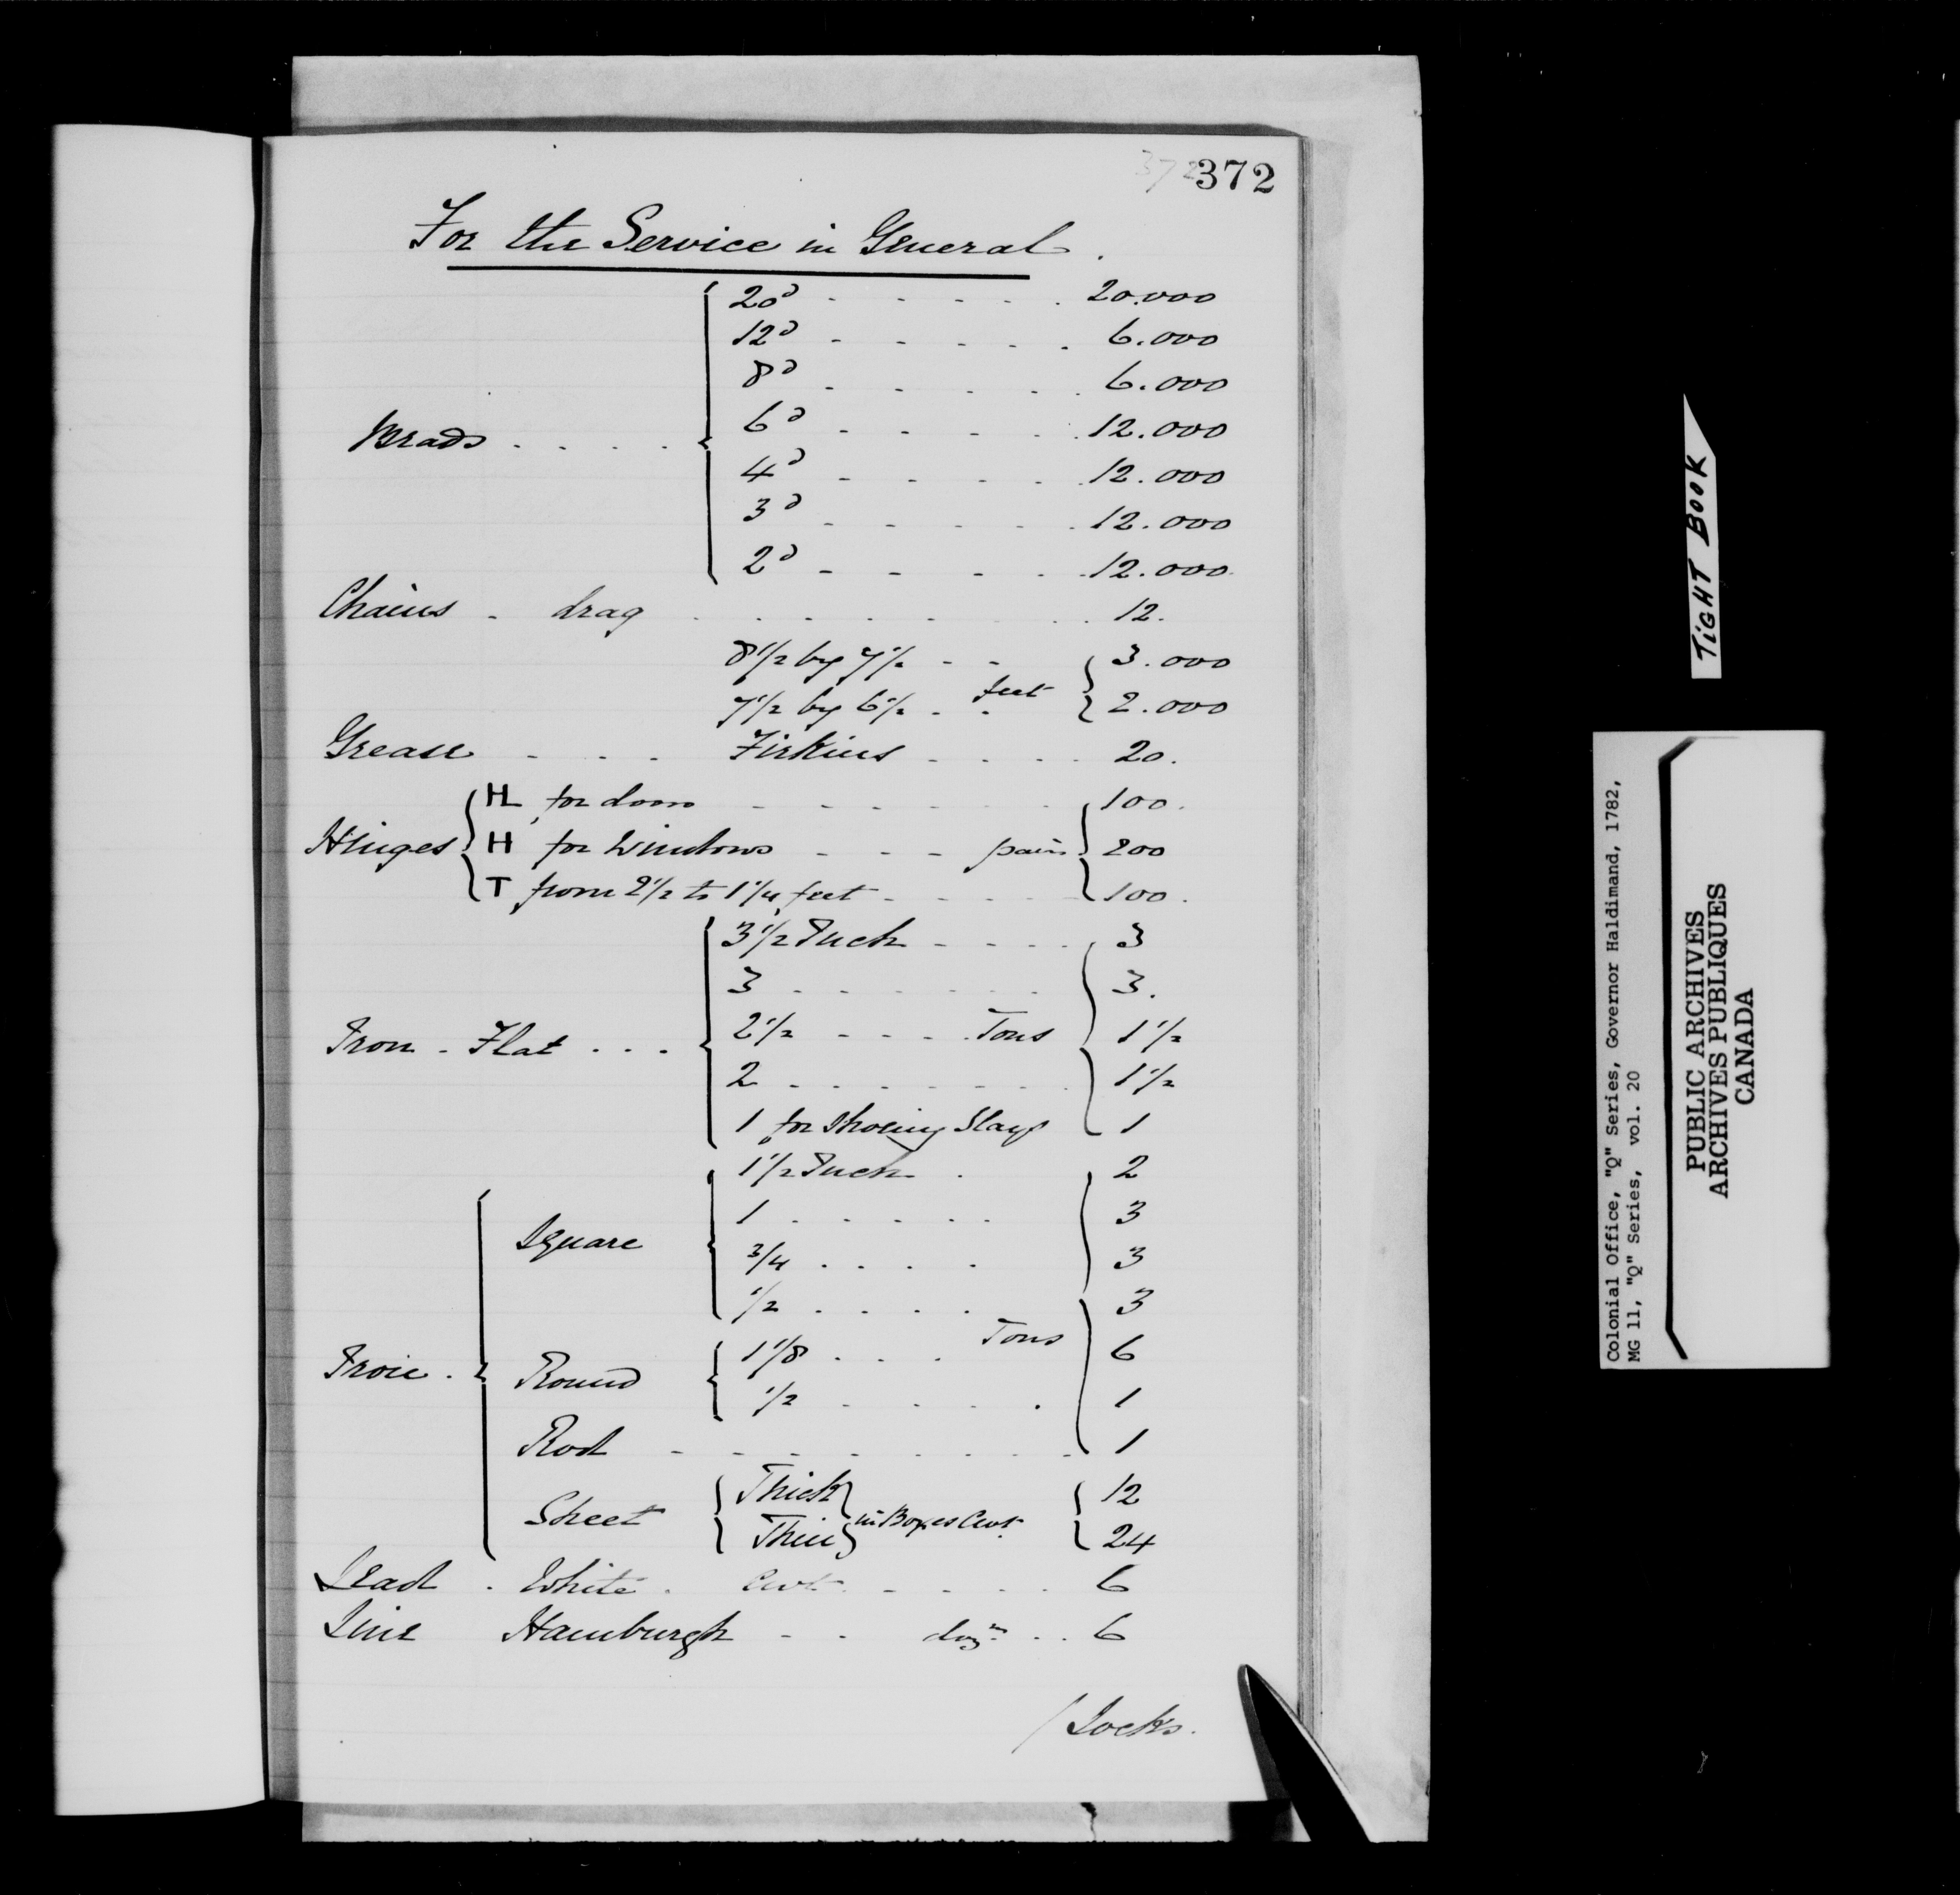 372 372
For the Service in General.
20d - - - - - 20.000
12d - - - - - 6.000
8d - - - - - 6.000
6d - - - - - 12.000
Brads . . . .
4d - - - - - 12.000
3d - - - - - 12.000
2d - - - - - 12.000
Chains - drag - - - - - 12.
8 1/2 by 7 1/2 - - 3.000
feet
7 1/2 by 6 1/2 - - 2.000
Grease - - - Firkins - - - - 20.
HL for doors - - - - - - 100.
Hinges H for Windows - - - pairs 200
T from 2 1/2 to 1 1/4 feet - - - - 100.
3 1/2 Inch - - - - 3
3 - - - - - - 3.
2 1/2 - - - - Tons 1 1/2
Iron - Flat . . .
2 - - - - - - 1 1/2
1 for Shoeing Slays 1
1 1/2 Inch . 2
1 . . . . . 3
Square
3/4 . . . . 3
1/2 . . . . 3
Tons
1 1/8 . . . 6
Iron . Round
1/2 . . . . 1
Rod - - - - - - - 1
Thick 12
Sheet in Boxes Cwt
Thin 24
Lead . White . Cwt - - - - 6
Line Hamburgh - - dozn . . 6
/ Locks.
TIGHT BOOK
Colonial Office, "Q" Series, Governor Haldimand, 1782,
MG 11, "Q" Series, vol. 20
PUBLIC ARCHIVES
ARCHIVES PUBLIQUES
CANADA